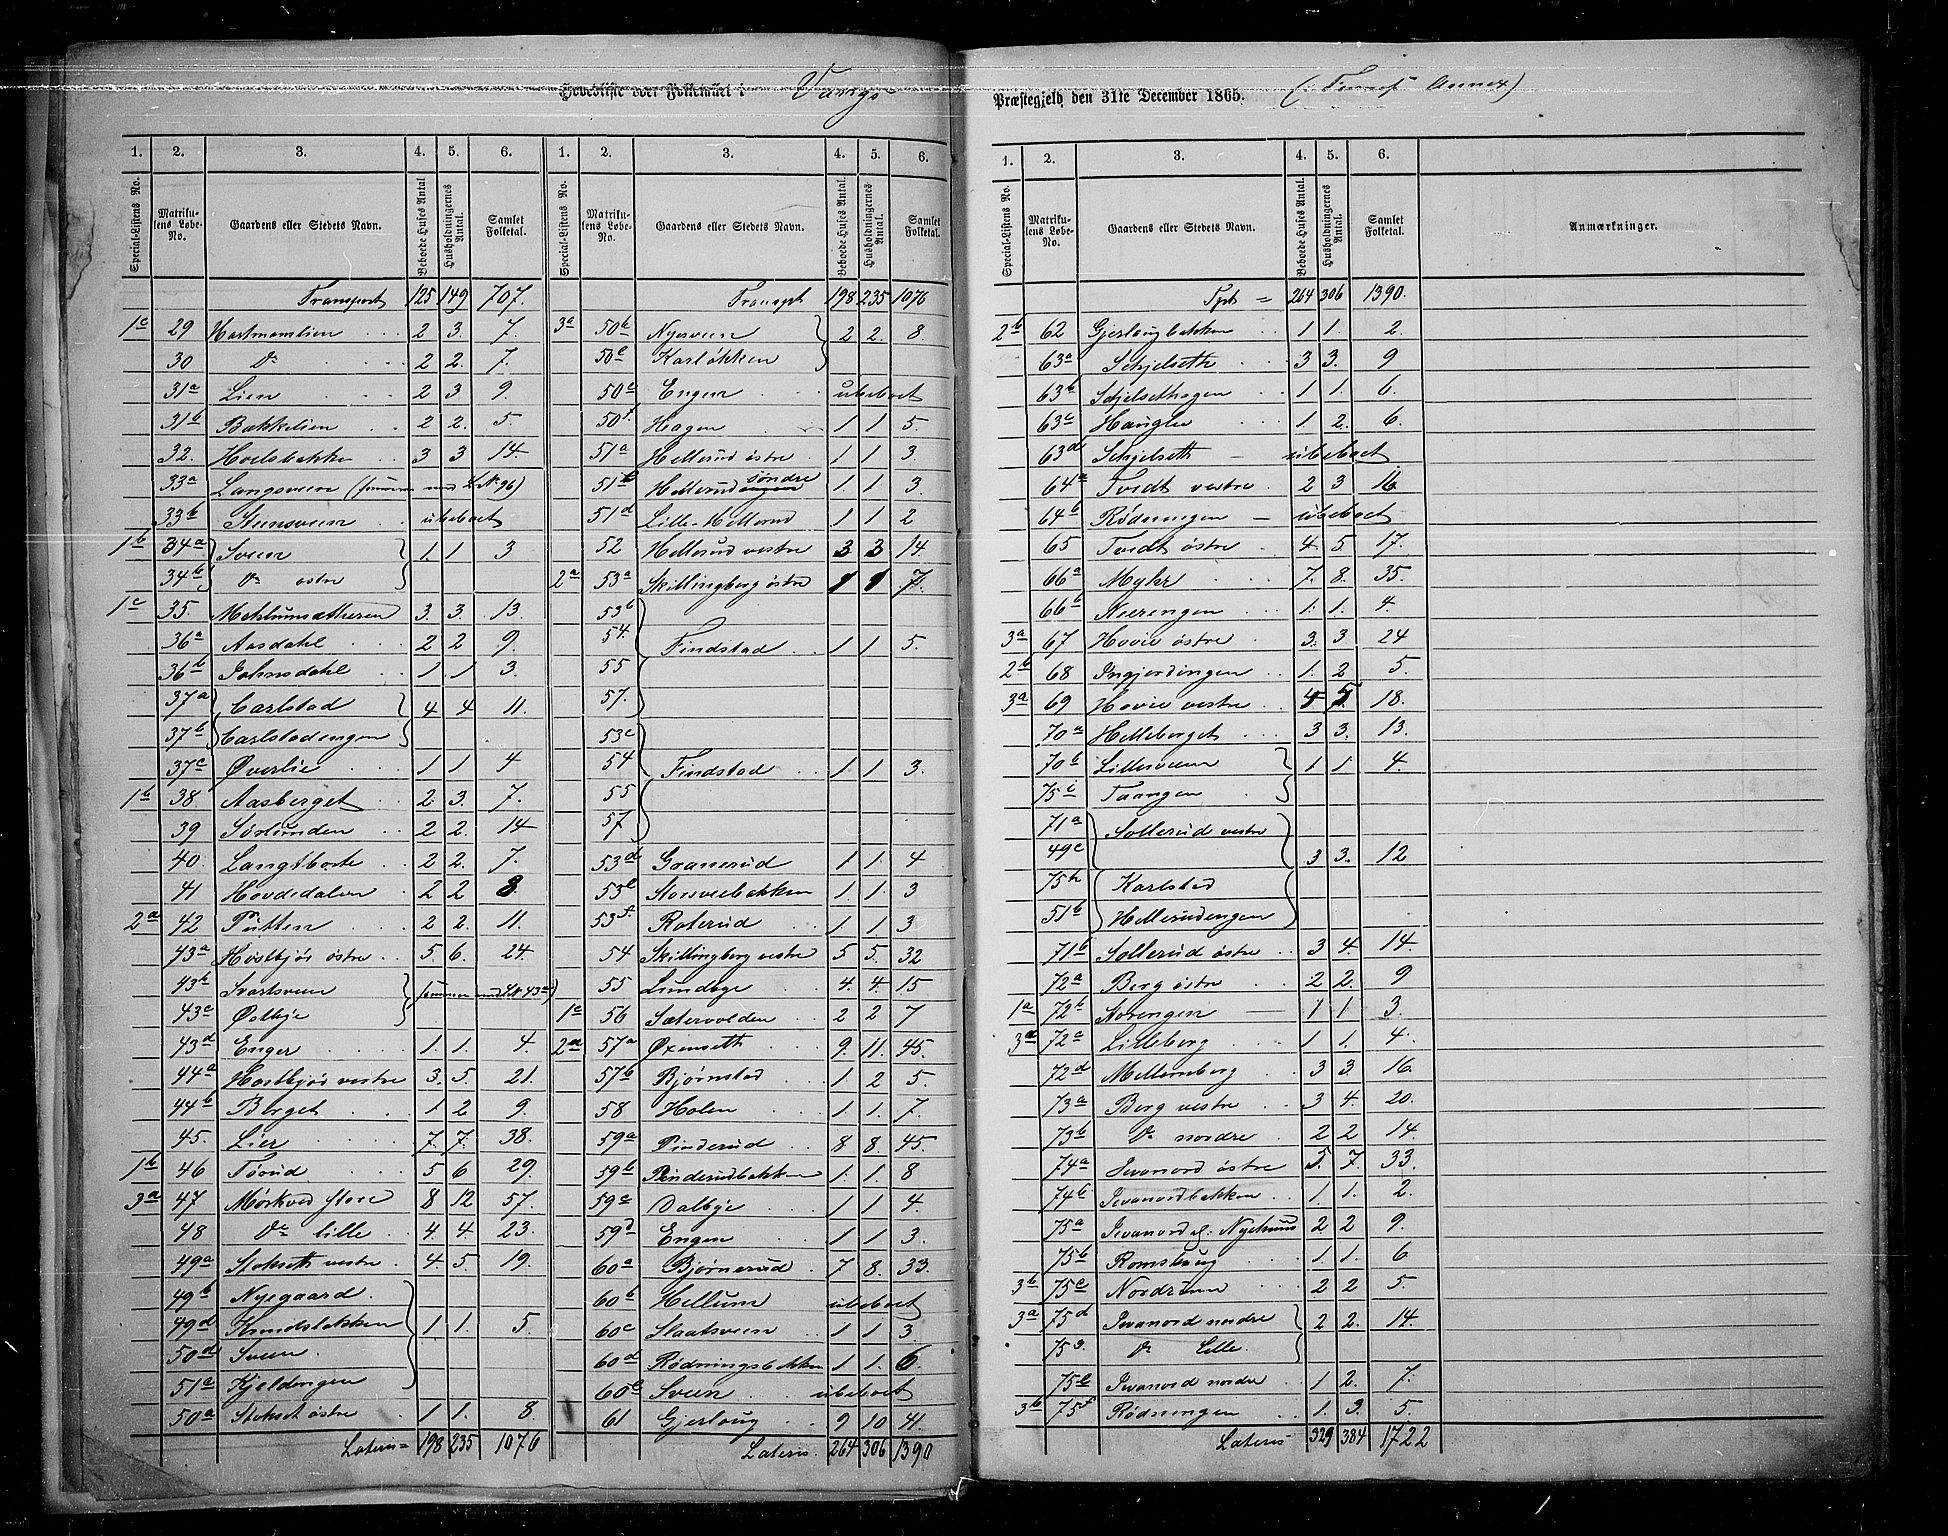 Hovedliste over Folketallet i Vangs Præstegjeld den 31te December 1865. (: Furnes Annex)
1. 2. 3. 4. 5. 6. 1. 2. 3. 4. 5. 6.
Special-Listens No. Matrikulens Løbe-No. Gaardens eller Stedets Navn. Beboede Huses Antal Husholdningernes Antal. Samlet Folketal. Special-Listens No. Matrikulens Løbe-No. Gaardens eller Stedets Navn. Beboede Huses Antal. Husholdningernes Antal. Samlet Folketal.
Transport 125 149 707.
1c 29 Hartmanslien 2 3. 7
30 do 2 2. 7.
31a Lien 2 3 9.
31b Bakkelien 2 2. 5.
32. Hoelsbakken 3 3 14.
33a Langsveen (sammen med L.No 96)
33b Steensveen ubeboet
1b 34a Sveen 1 1 3
34b do østre
1c 35. Mehlumsætheren 3. 3. 13.
36a Aasdahl 2 2 9.
36b Johnsdahl 1 1 3.
37a Carlstad 4 4 11.
37b Carlstadengen
37c Øverlie 1 1 4
1b 38. Aasberget 2. 3. 7.
39 Sørlunden 2 2. 14
40. Langtborte 2 2. 7.
41 Hovdedalen 2 2 8
2a 42 Putten 2 2. 11.
43a Hostbjør østre 5. 6. 24.
43b Svartsveen (sammen med L.No 43a)
43c Østbye
43d Enger 1. 1. 4.
44a Hostbjør vestre 3. 5. 21.
44b Berget 1 2 9.
45. Lier 7 7. 38.
1b 46 Tørud 5 6 29.
3a 47 Mørkved store 8 12 57.
48 do lille 4. 4. 23.
49a Stokseth vestre 4. 5. 19.
49b Nyegaard
49d Knudsløkken 1 1. 5.
50d Sveen
51a Kjeldengen
50a Stokset østre 1 1. 8.
Lateris = 198 235 1076
Transpt 198 235 1076
3a 50b Nysveen 2 2. 8.
50c Karløkken
50e Engen ubeboet
50f Hagen 1 1 5.
51a Hellerud østre 1 1 3.
51c Hellerudengen søndre 1. 1. 3
51d Lille-Hellerud 1 1 2
52 Hellerud vestre 3 3 14.
2a 53a Skillingberg østre 1 1 7.
53b
54. Findstad 1 1 5.
55
57.
53c
54 Findstad 1 1 3.
55
57
53d Granerud 1 1. 4
53e Storsveebakken 1. 1. 3
53f Roterud 1 1 3
54 Skillingberg vestre 5 5. 32
55 Lundbye 4. 4. 15
1c 56 Sætervolden 2 2 7
2a 57a Øxenseth 9. 11. 45.
57b Bjørnstad 1 2 5.
58 Holen 1 1. 7.
59a Pinderud 8 8. 45.
59b Pinderudbakken 1. 1. 8
59c Dalbye 1 1 4.
59d Engen 1 1 3.
60a Bjørnerud 7 8. 33.
60b Hellum ubeboet
60c Staatsveen 1 1 3
60d Rødningsbakken 1 1. 6.
60e Sveen ubeboet
61 Gjerloug 9 10 41.
Lateris. 264 306 1390
1. 2. 3. 4. 5. 6.
Special-Listens No. Matrikulens Løbe-No. Gaardens eller Stedets Navn. Beboede Huses Antal. Husholdningernes Antal. Samlet Folketal. Anmærkninger.
Tpt = 264 306 1390.
2b 62 Gjerlougbakken 1 1. 2.
63a Schjelseth 3 3. 9
63b Schjelsethagen 1 1. 6.
63c Haugler 1 2. 6.
63d Schjelseth ubeboet
64a Tvedt vestre 2 3 16
64b Rødningen ubeboet
65 Tvedt østre 4. 5. 17.
66a Myhr 7. 8. 35.
66b Neerengen 1. 1. 4.
3a 67 Hovie østre 3. 3 24
2b 68 Ingjerdingen 1. 2 5.
3a 69 Hovie vestre 4 5. 18.
70a Helleberget 3 3. 13.
70b Lillesveen 1 1 4.
75i Taangen
71a Sollerud vestre
49c 3 3. 12
75h Karlstad
51b Hellerudengen
71b Sollerud østre 3 4. 14.
72a Berg østre 2 2. 9
1a 72b Norengen 1 1 3.
3a 72c Lilleberg 1 1. 4.
72d Mellemberg 3 3. 16.
73a Berg vestre 3 4. 20.
73b do nordre 2 2 14.
74a Jevanord østre 5. 7. 33.
74b Jevanordbakken 1. 1. 2.
75a Jevanord el. Nyehuus 2 2 9.
75b Romsaug 1 1. 6.
3b 75c Nordrum 2 2 5.
3a 75d Jevanord nordre 2 2. 14.
75g do Lille.
75e Jevanord nordre 1 2. 7.
3b 75f Rødningen 1. 3. 5.
Lateris 329 384 1722